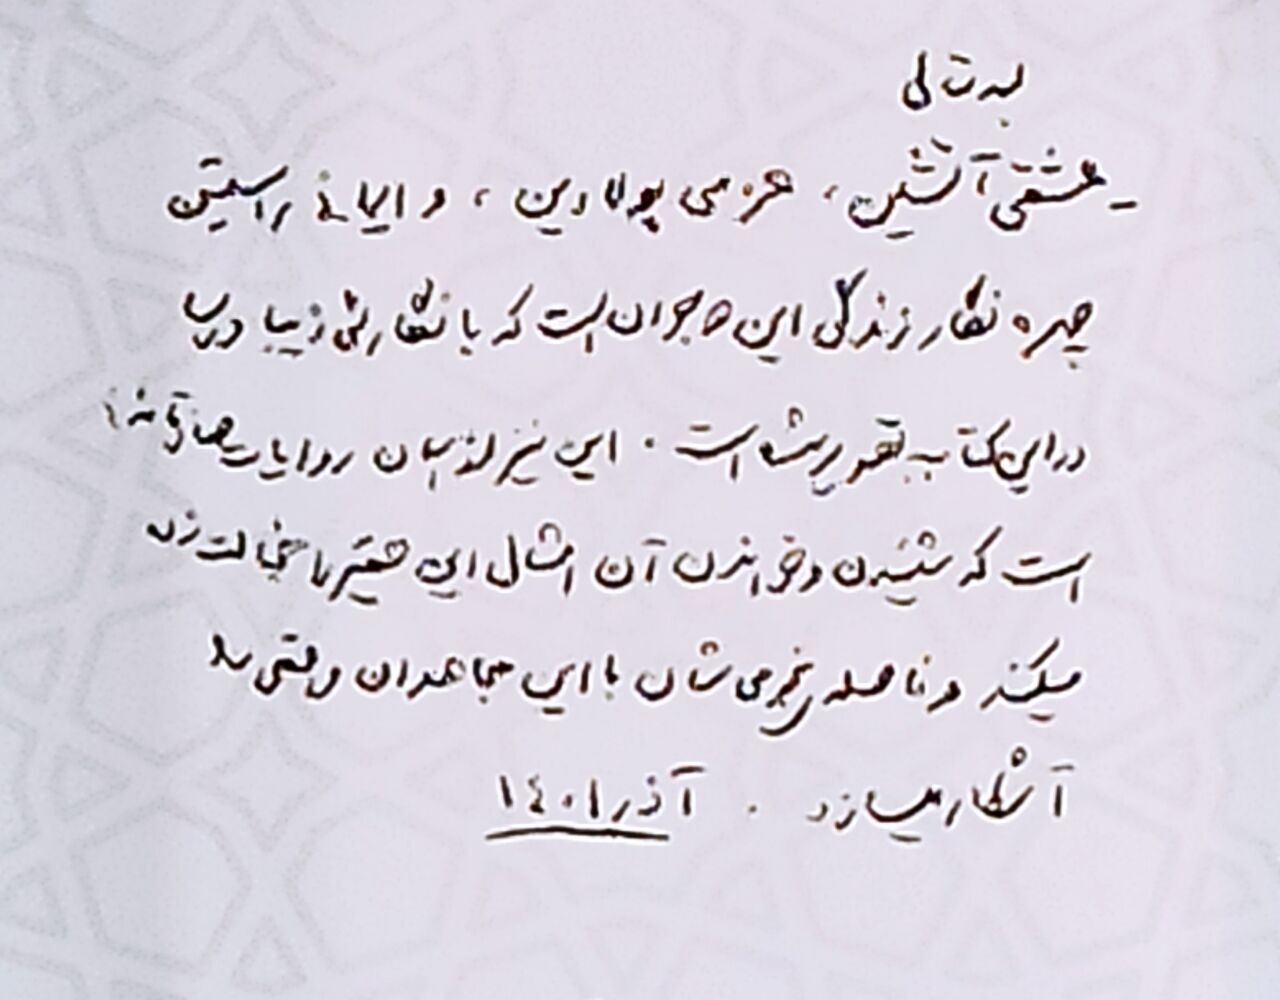 بسمه تعالی
ـ عشقی آتشین، عزمی پولادین، و ایمانی راستین
چهره نگار زندگی این جوان است که با نگارشی زیبا و رسا
در این کتاب تصویر شده است. این نیز از آن روایات صادقانه‌ای
است که شنیدن و خواندن آن امثال این حقیر را خجالت زده
میکند و فاصله‌ی نجومی شان با این مجاهدان واقعی را
آشکار میسازد. آذر ۱۴۰۱